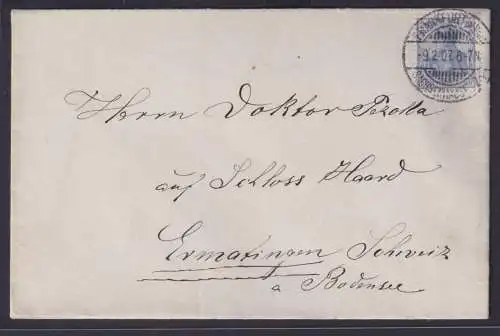 FRANKFURT (MAIN)
-9.2.07. 6-7N
Herrn Doktor Pezolla
auf Schloss Haard
Ermatingen Schweiz
a Bodensee